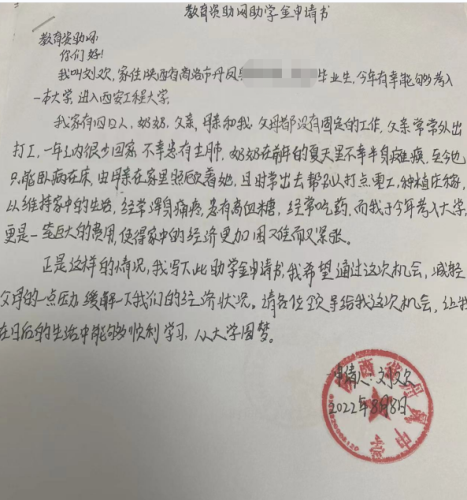 教育资助网助学金申请书
教育资助网:
你们好!
我叫刘欢,家住陕西省商洛市丹凤 毕业生,今年有幸能够考入
一本大学,进入西安工程大学。
我家有四口人,奶奶,父亲,母亲和我。父母都没有固定的工作,父亲常常外出
打工,一年之内很少回家 不幸患有 奶奶在前年的夏天里不幸半身瘫痪,至今也
只能卧病在床,由母亲在家里照顾着她,且时常出去帮别人打点零工,种植庄稼,
以维持家中的生活,经常浑身痛疼,患有高血糖,经常吃药,而我于今年考入大学,
更是一笔巨大的费用,使得家中的经济更加困难而又紧张。
正是这样的情况,我写下此助学金申请书,我希望通过这次机会,减轻
父母的一点压力 缓解一下我们的经济状况。请各位领导给我这次机会,让我
在日后的生活中能够顺利学习,从大学圆梦。
申请人:刘欢
2022年8月8日
陕西省丹凤中学